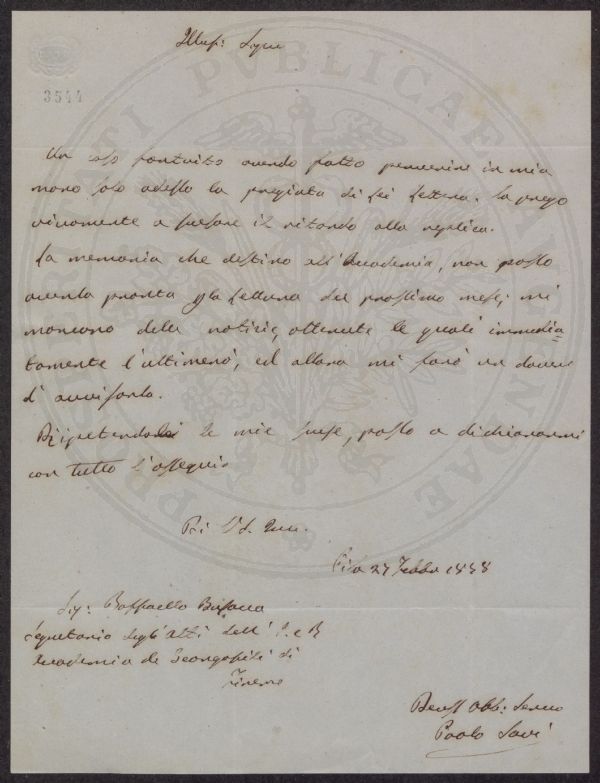 3544
PROSPERITATI PVBLICAE AVGENDAE
Illus: Sigre
Un caso fortuito avendo fatto pervenire in mia
mano solo adesso la pregiata di Lei lettera, la prego
vivamente a scusare il ritardo alla replica.
La memoria che destino all'Accademia, non posso
averla pronta p la lettura del prossimo mese; mi
mancano delle notizie, ottenute le quali immedia=
tamente l'ultimerò, ed allora mi farò un dovere
d'avvisarla.
Ripetendole le mie scuse, passo a dichiararmi
con tutto l'ossequio
Di V.S. Illma.
Pisa 27 1838
Sig: Raffaello
Segretario degl'Atti dell' I. e R.
Accademia de Georgofili di
Firenze
Devoss Obb: Servo
Paolo Savi